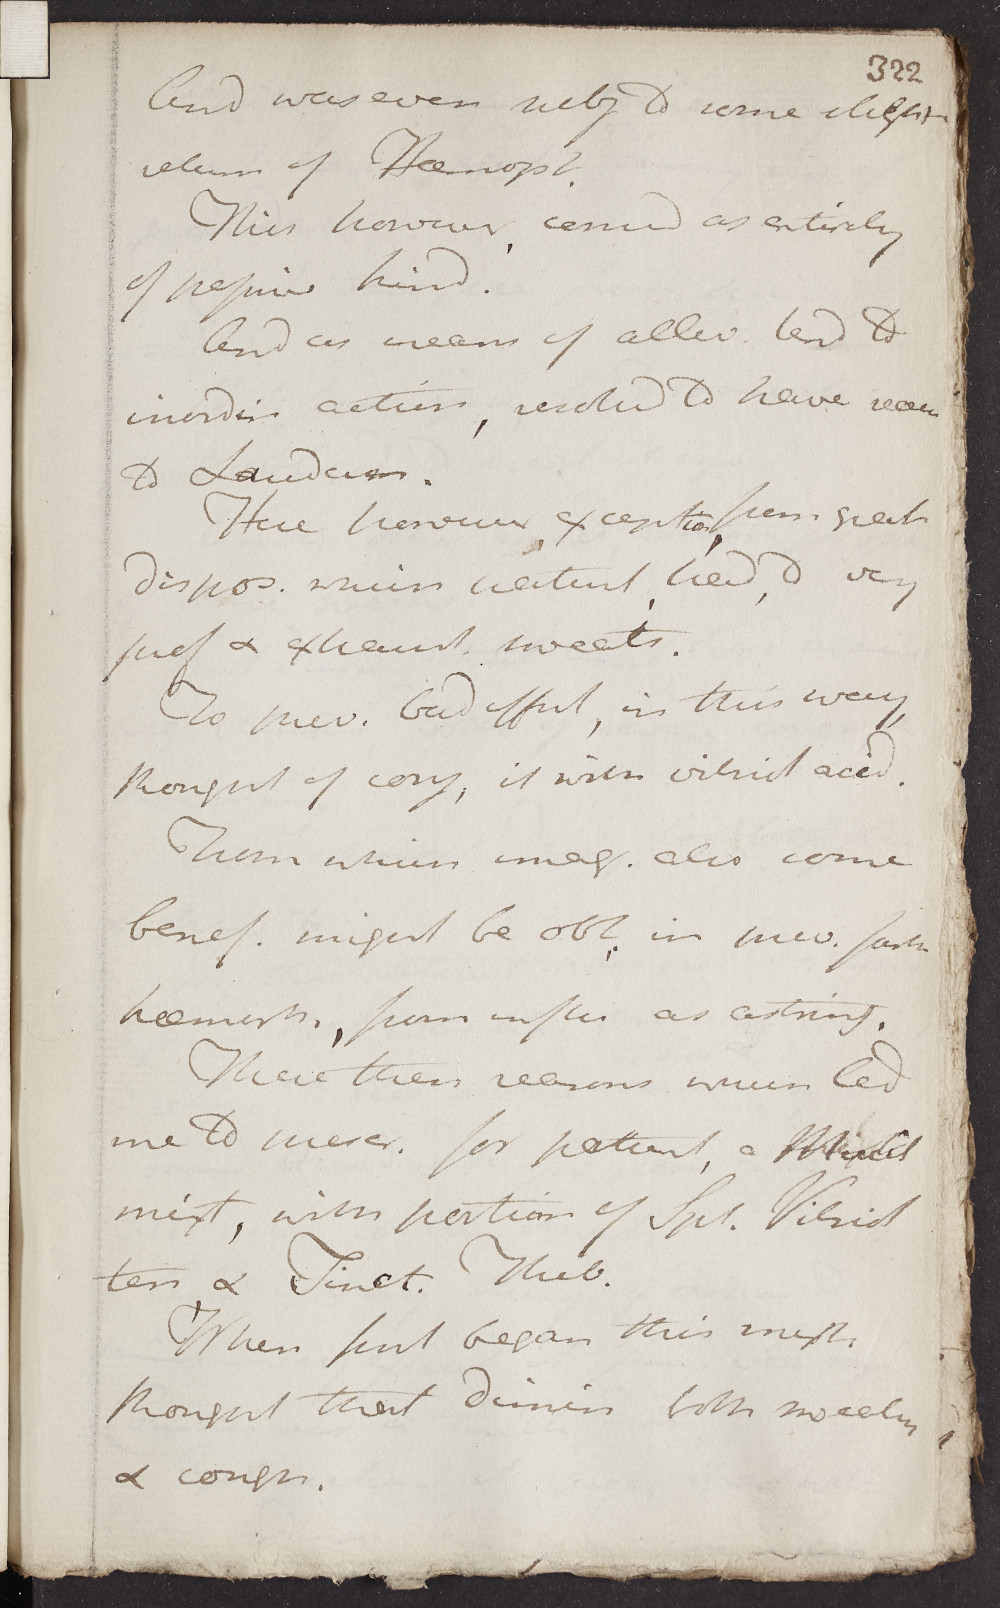 322
And was even subj. to some slight
return of Hæmopt.
This however, consid as entirely
of passive kind.
And as means of allev. tend to
inordin action, resolved to have recou
to Laudan.
Here however exception, from great
dispos. which patient, had, to very
prof & exhaust. sweats.
To prev. bad effect, in this way,
thought of conj, it with vitriol acid.
From which imag. also some
benef. might be obt. in prev. farth
hæmorrh, from influ as astring.
These then reasons which led
me to prescr. for patient, a
mixt, with portion of Spt. Vitriol
ten & Tinct. Theb.
When first began this mixt.
thought that dimin both sweating
& cough.